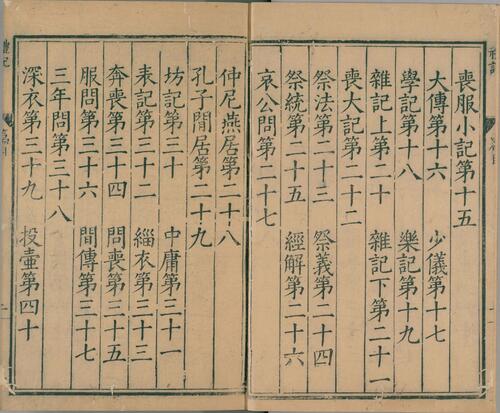 喪服小記第十五
大傳第十六 少儀第十七
學記第十八 樂記第十九
雜記上第二十 雜記下第二十一
喪大記第二十二
祭法第二十三 祭義第二十四
祭統第二十五 經解第二十六
哀公問第二十七
仲尼燕居第二十八
孔子閒居第二十九
坊記第三十 中庸第三十一
表記第三十二 緇衣第三十三
奔喪第三十四 問喪第三十五
服問第三十六 間傳第三十七
三年問第三十八
深衣第三十九 投壺第四十